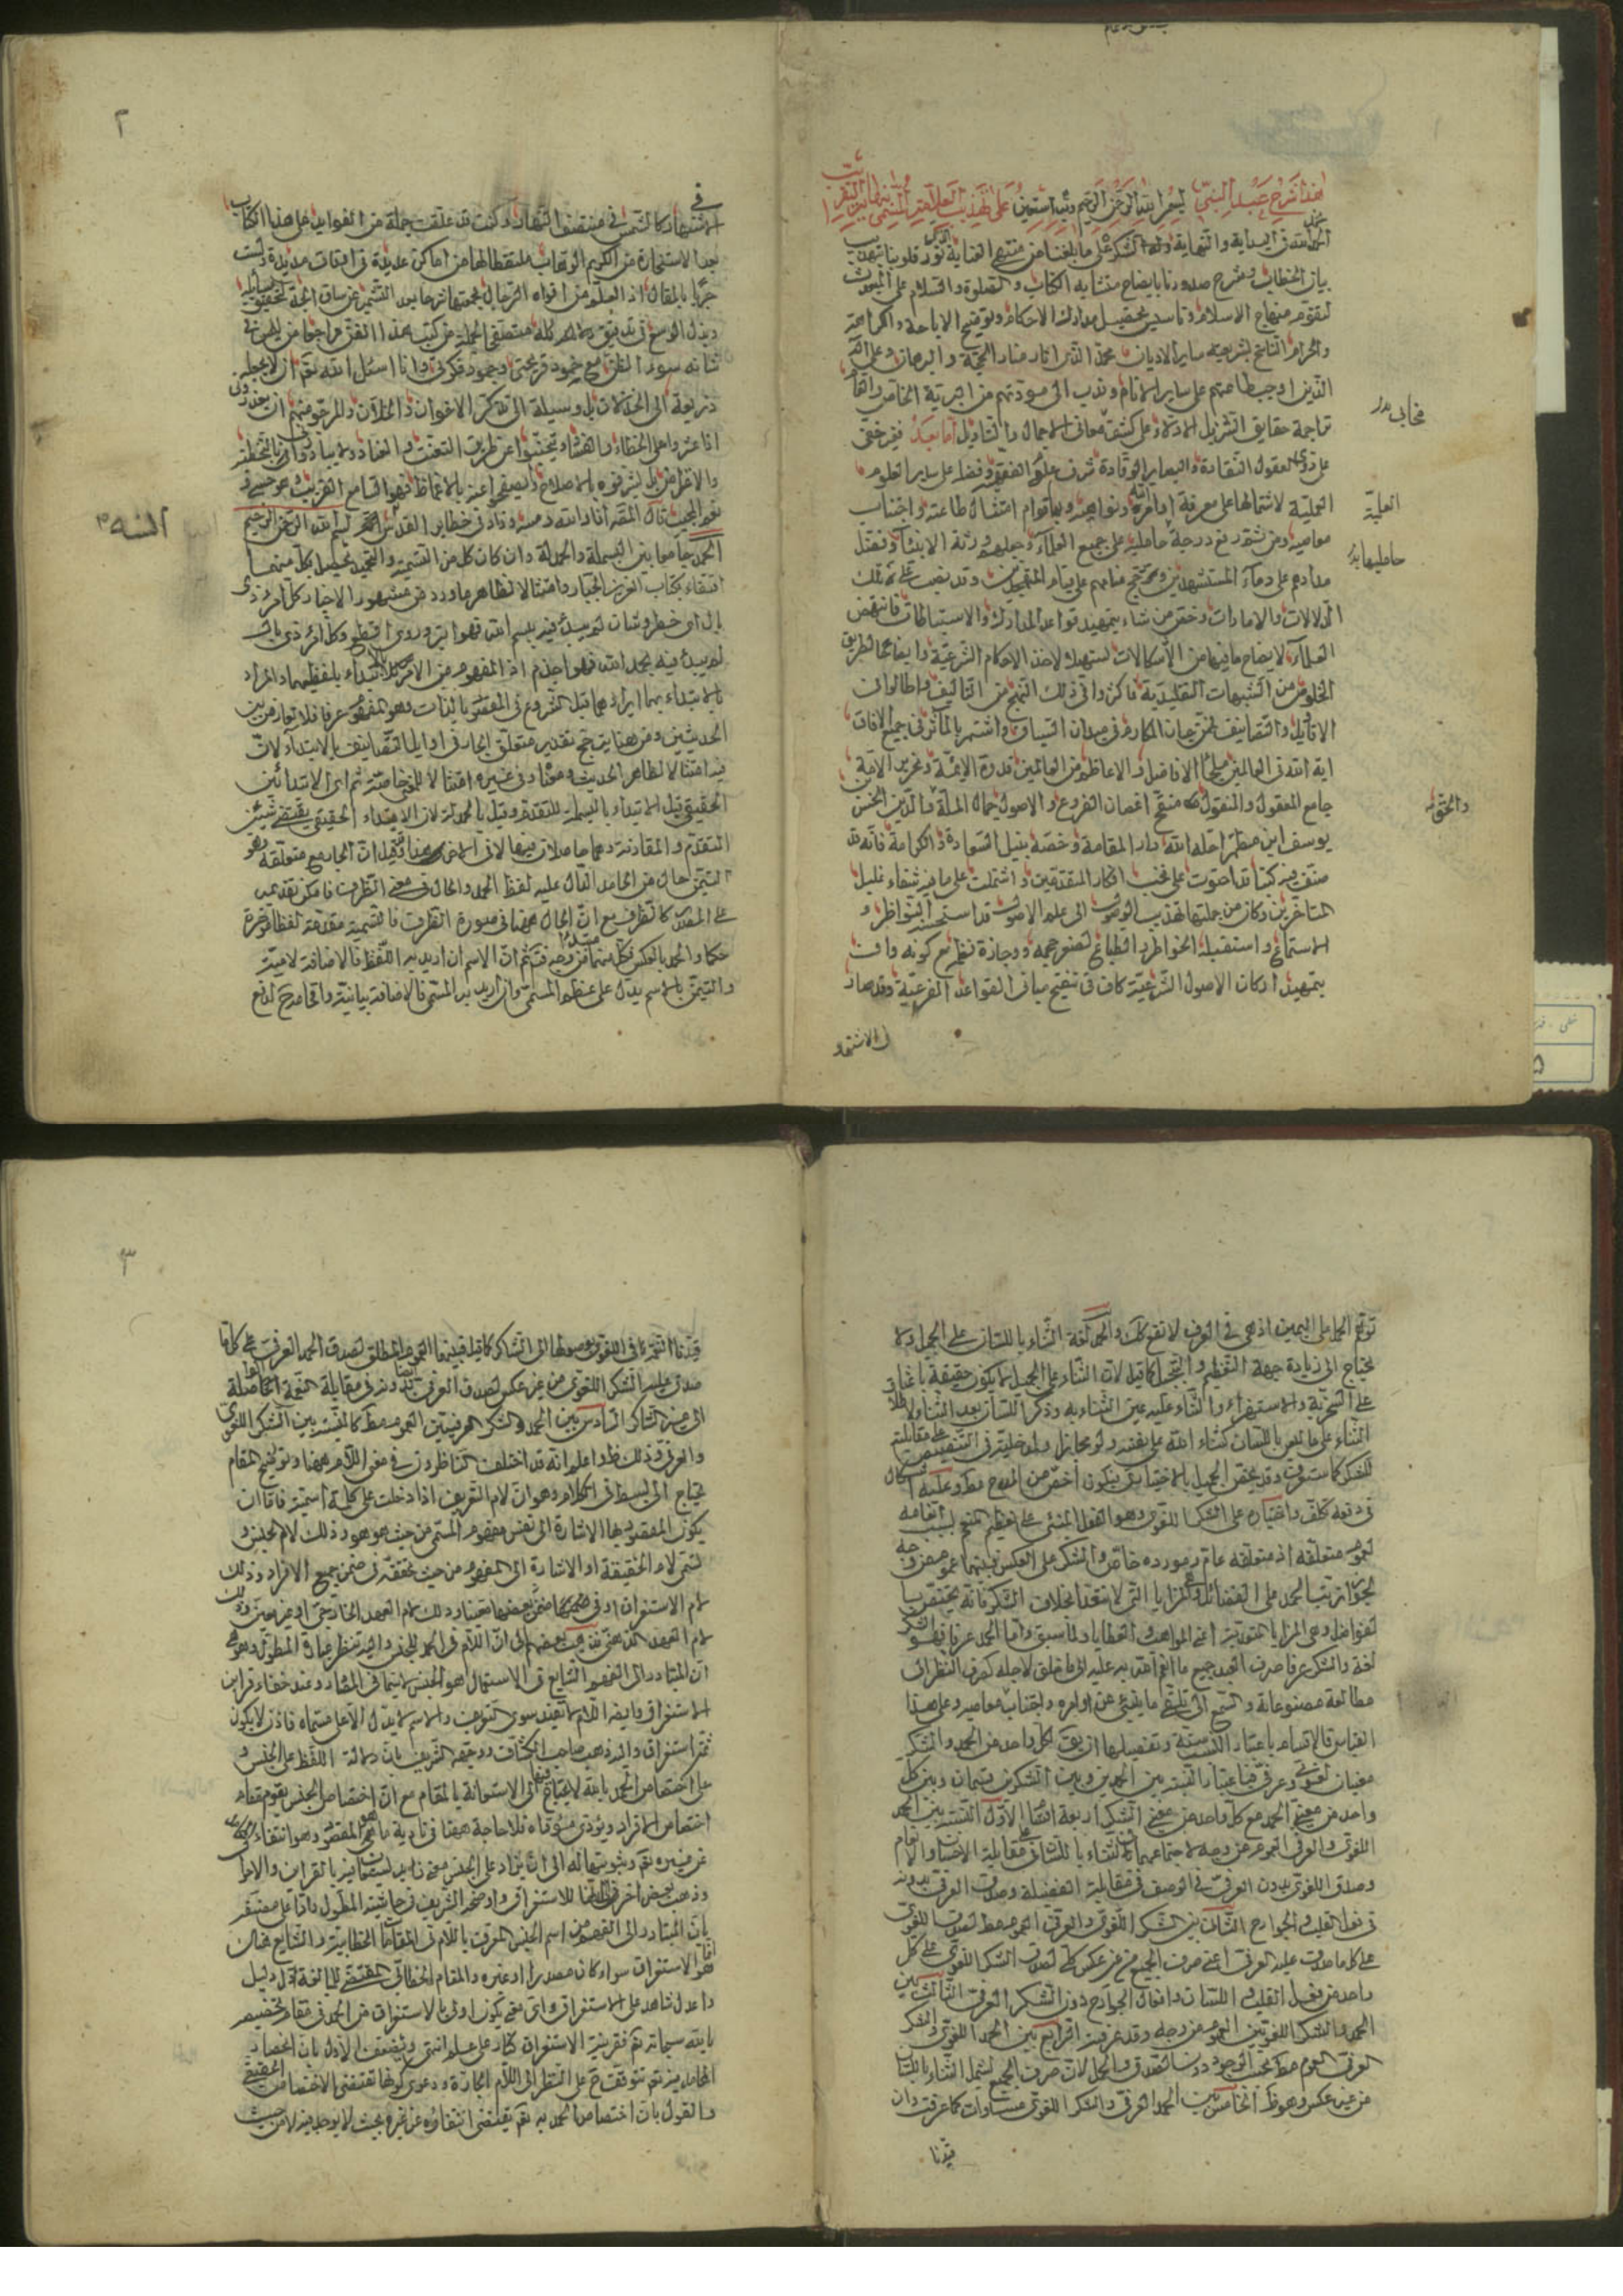 هذا شرح عبد النبی بسم الله الرحمن الرحیم وبه نستعین علی تهذیب العلامة
الحمد لله فی البدایة والنهایة والشکر علی ما بلغنا من منتهی العنایة نور قلوبنا بتهذیب
بیان الخطاب وشرح صدورنا بایضاح متشابه الکتاب والصلوة والسلام علی المبعوث
لتقویم منهاج الاسلام وتاسیس تحصیل مدارک الاحکام وتوضیح الاباحة والکراهة
والحرام الناسخ لشریعته سایر الادیان محمد الذی انار منار الحجة والبرهان وعلی آله
الذین اوجب طاعتهم علی سایر الانام وندب الی مودتهم من البریة الخاص والعام
تراجمة حقایق التنزیل الادلاء علی کشف معانی الاجمال والتاویل اما بعد فغیر خفی
علی ذوی العقول النقادة والبصایر الوقادة شرف علم الفقه وفضله علی سایر العلوم
العملیة لاشتمالها علی معرفة اوامر الله ونواهیه وبها قوام امتثال طاعته واجتناب
معاصیه ومن ثم رفع درجة حاملیه علی جمیع العلماء وجعلهم ورثة الانبیاء وفضل
مدادهم علی دماء المستشهدین ورجح منامهم علی قیام المتهجدین وقد نصب علی ذلک
الدلالات والامارات وخص من شاء بتمهید قواعد المدارک والاستنباطات فانتهض
العلماء لایضاح ما فیها من الاشکالات لیتهدوا لاخذ الاحکام الشرعیة وایضاح الطریق
الخلوص من الشبهات التقلیدیة فاکثروا فی ذلک النهج من التالیف واطالوا فی
الاقاویل والتصانیف فمن حاز المکارم فی میدان السباق واشتهر بالمآثر فی جمیع الافاق
ایة الله فی العالمین ملجأ الافاضل والاعاظم من العالمین قدوة الائمة ونحریر الامة
جامع المعقول والمنقول منقح اغصان الفروع والاصول جمال الملة والدین الحسن
یوسف ابن مطهر احله الله دار المقامة وخصه بنیل السعادة والکرامة فانه قد
صنف فیه کتبا قد احتوت علی نخب افکار المتقدمین واشتملت علی ما فیه شفاء غلیل
المتاخرین وکان من جملتها تهذیب الوصول الی علم الاصول قد استحسنه النواظر و
الاستماع واستقبله الخواطر والطباع لصغر حجمه ووجازة نظمه مع کونه واف
بتمهید ارکان الاصول الشرعیة کاف فی تنقیح مبانی القواعد الفرعیة وقد صار
فی الاشتهار
العملیة
حاملیها بدل
۲
فی
الاشتهار کالشمس فی منتصف النهار وکنت قد علقت جملة من الفواید علی هذا الکتاب
بعد الاستخارة من الکریم الوهاب ملتقطا لها من اماکن عدیدة فی اوقات مدیدة ولست
وبذل الوسع فی تدقیق دلایله
شانه سوء الظن مع خمود قریحتی وجمود فکرتی وانا اسئل الله تع ان لا یجعله
ذریعة الی الخذلان بل وسیلة الی تذکر الاخوان والخلان والمرجو منهم ان یعذرونی
والاعراض بل یشرفوه بالاصلاح او یصفحوا عنه بالاغماض فهو السامع القریب وهو حسبی
نعم المجیب قال المصنف انار الله رمسه وزاد فی حظایر القدس بسم الله الرحمن الرحیم
الحمد جامعا بین البسملة والحمدلة وان کان کل من التسمیة والتحمید یحصل بکل منهما
اقتفاء بکتاب العزیز الجبار وامتثالا لظاهر ما ورد من مشهور الاخبار کل امر ذی
بال ای خطر وشان لم یبدء فیه ببسم الله فهو ابتر وروی اقطع وکل امر ذی بال
لم یبدء فیه بحمد الله فهو اجذم اذ المفهوم من الامر بالابتداء بلفظیهما والمراد
بالابتداء بهما ایرادهما قبل الشروع فی المقصود بالذات وهو المفهوم عرفا فلا تعارض بین
الحدیثین ومن هنا یترجح تقدیر متعلق الجار فی اوایل التصانیف بالابتداء لان
فیه امتثالا لظاهر الحدیث ومعناه وفی غیره امتثالا لمعنی خاصة ثم ان الابتدائین
الحقیقی قیل الابتداء بالبسملة للتقدم وقیل بالحمدلة لان الابتداء الحقیقی یقتضی شیئین
التقدم والمقارنة وهما حاصلان فیها لا فی البسملة
التیمن حال من الحامد الدال علیه لفظ الحمد والحال فی معنی الظرف فامکن تقدیمه
علی المقدر کالظرف مع ان الحال ههنا فی صورة الظرف فالتسمیة مقدمة لفظا مؤخرة
حکما والحمد بالعکس فکل منهما مبتدء من وجه ثم ان الاسم ان ارید به اللفظ فالاضافة لامیة
والتیمن بالاسم یدل علی عظم المسمی وان ارید به المسمی فالاضافة بیانیة
توقع الحمل علی الیمین اذ هی فی العرف لا تقع کک والحمد لغة الثناء باللسان علی الجمیل ولا
یحتاج الی زیادة جهة التعظیم والتبجیل کما قیل لان الثناء علی الجمیل لا یکون حقیقة باعثا
علی السخریة والاستهزاء والثناء علیه عین الثناء به وذکر اللسان بعد الثناء لاطلاق
الثناء علی ما لیس باللسان کثناء الله علی نفسه ولو مجازا
للشکر کما ستعرف وقد یخص الجمیل بالاختیاری فیکون اخص من المدح مط وعلیه اشکال
فی دفعه تکلف واختیاره علی الشکر اللغوی وهو الفعل المنبئ علی تعظیم المنعم بسبب انعامه
لعموم متعلقه اذ متعلقه عام ومورده خاص والشکر علی العکس فبینهما عموم من وجه
لجواز ترتب الحمد علی الفضائل والمزایا التی لا تتعدی بخلاف الشکر فانه یختص بـ
لفواضل وهی المزایا المتعدیة اعنی المواهب والعطایا ولما سبق واما الحمد عرفا فهو الشکر
لغة والشکر عرفا صرف العبد جمیع ما انعم الله به علیه الی ما خلق لاجله کصرف النظر الی
مطالعة مصنوعاته والسمع الی تلقی ما ینبئ عن اوامره واجتناب معاصیه وعلی هذا
القیاس فالاقسام باعتبار النسبة وتفصیلها ان یق لکل واحد من الحمد والشکر
معنیان لغوی وعرفی فباعتبار النسبة بین الحمدین وبین الشکرین قسمان وبین کل
واحد من معنی الحمد مع کل واحد من معنی الشکر اربعة اقسام الاول النسبة بین الحمد
اللغوی والعرفی العموم من وجه لاجتماعهما فی الثناء باللسان فی مقابلة الاحسان والانعام
وصدق اللغوی بدون العرفی فی الوصف فی مقابلة الفضیلة وصدق العرفی بدونه
فی فعل القلب والجوارح الثانی بین الشکر اللغوی والعرفی العموم مط لصدق اللغوی
علی کل ما صدق علیه العرفی اعنی صرف الجمیع من غیر عکس کلی لصدق الشکر اللغوی علی کل
واحد من فعل القلب واللسان وافعال الجوارح دون الشکر العرفی الثالث بین
الحمد والشکر اللغویین العموم من وجه وقد عرفته الرابع بین الحمد اللغوی والشکر
العرفی العموم مط بحسب الوجود دون الصدق والحمل لان صرف الجمیع یشمل الثناء باللسان
من غیر عکس وهو ظ الخامس بین الحمد العرفی والشکر اللغوی مساوات کما عرفت وان
قیدنا
۳
قیدنا النعمة فی اللغوی بوصولها الی الشاکر کما قیل فبینهما العموم المطلق لصدق الحمد العرفی علی کل ما
صدق علیه الشکر اللغوی من غیر عکس لصدق العرفی بدونه فی مقابلة النعمة الحاصلة
الی غیر الشاکر السادس بین الحمد والشکر العرفیین العموم مط کالنسبة بین الشکر اللغوی
والعرفی وذلک ظ واعلم انه قد اختلف الناظرون فی معنی اللام ههنا وتوضیح المقام
یحتاج الی البسط فی الکلام وهو ان لام التعریف اذا دخلت علی کلمة اسمیة فاما ان
یکون المقصود بها الاشارة الی نفس مفهوم المسمی من حیث هو هو وذلک لام الجنس و
تسمی لام الحقیقة او الاشارة الی المفهوم من حیث تحققه فی ضمن جمیع الافراد وذلک
لام الاستغراق او فی ضمن بعضها معینا وذلک لام العهد الخارجی او غیر معین وذلک
لام العهد الذهنی فذهب بعضهم الی ان اللام فی الحمد للجنس
ان المتبادر الی الفهم الشایع فی الاستعمال هو الجنس لا سیما فی المصادر وعند خفاء قراین
الاستغراق وایضا اللام لا تفید سوی التعریف والاسم لا یدل الا علی مسماه فاذن لا یکون
ثم استغراق والیه ذهب صاحب الکشاف ووجهه الشریف بان دلالة اللفظ علی الجنس و
علی اختصاص الحمد بالله لا یحتاج فیها الی الاستعانة بالمقام مع ان اختصاص الجنس یقوم مقام
اختصاص الافراد ویؤدی مؤداه فلا حاجة ههنا فی تادیة ما هو المقصود وهو انتفاء الحمد
عن غیره تع وثبوتها له الی ان یزاد علی الجنس معنی زاید یستعان فیه بالقراین والاحوال
وذهب بعض اخر الی انها للاستغراق واوضحه الشریف فی حاشیة المطول
بان المتبادر الی الفهم من اسم الجنس المعرف باللام فی المقامات الخطابیة والشایع هناک
هو الاستغراق سواء کان مصدرا او غیره والمقام الخطابی المقتضی للمبالغة ادل دلیل
واعدل شاهد علی الاستغراق وای معنی یکون اولی بالاستغراق من الحمد فی مقام تخصیصه
بالله سبحانه تع فقرینة الاستغراق کنار علی علم انتهی ویضعف الاول بان انحصار
المحامد فیه تع تتوقف ح علی النظر الی اللام الجارة ودعوی کونها تقتضی الاختصاص الحقیقی
والقول بان اختصاص الحمد به تع یقتضی انتفاؤه عن غیره بحیث لا یوجد فیه لا من حیث